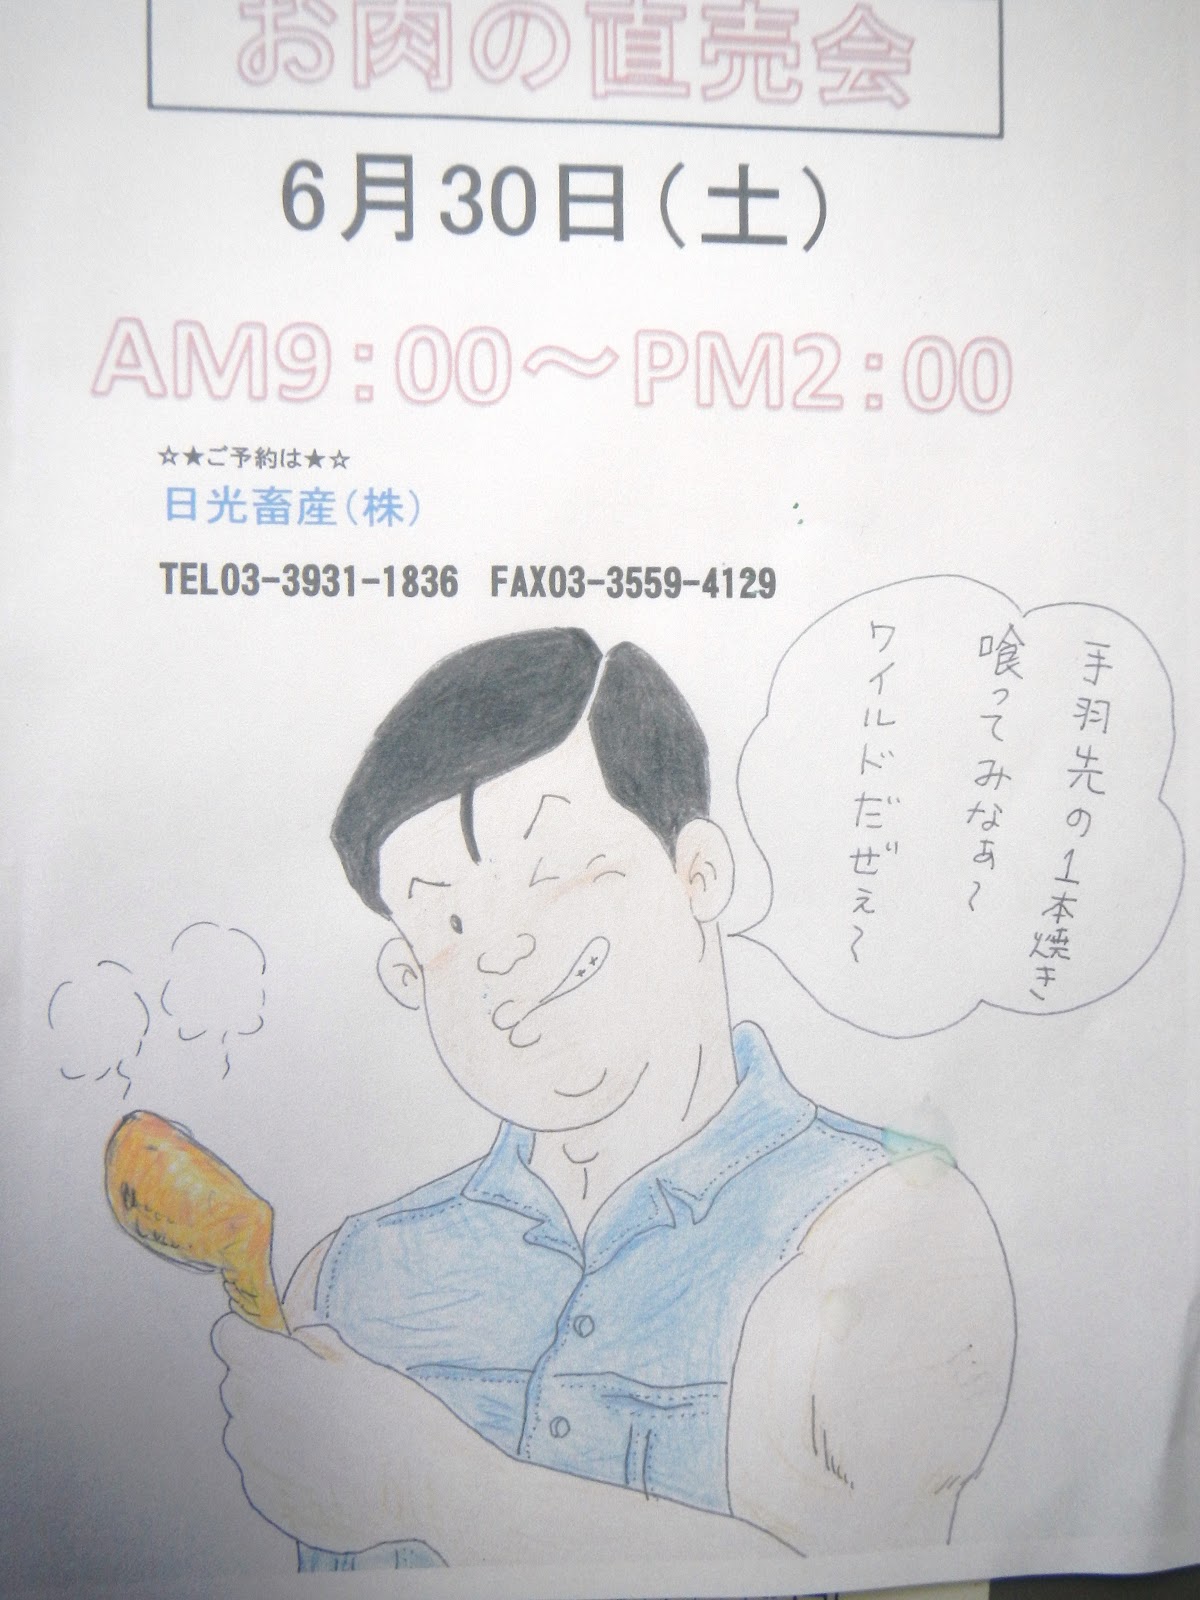 お肉の直売会
6月30日(土)
AM9:00～PM2:00
☆★ご予約は★☆
日光畜産(株)
TEL03-3931-1836　FAX03-3559-4129
手羽先の1本焼き
喰ってみなぁ～
ワイルドだぜぇ～